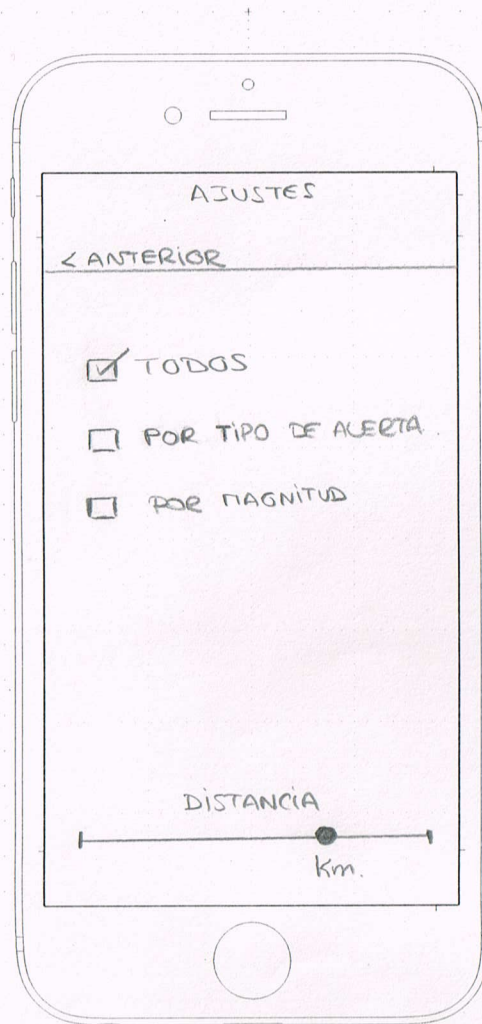 AJUSTES
< ANTERIOR
TODOS
POR TIPO DE ALERTA.
POR MAGNITUD
DISTANCIA
Km.